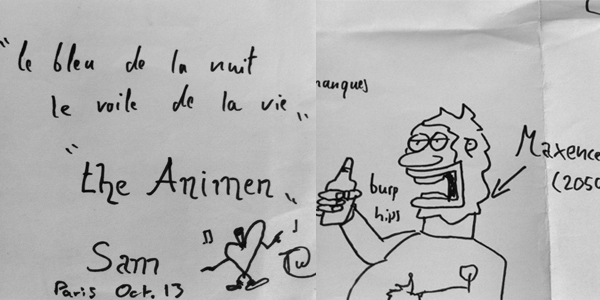 "le bleu de la nuit
le voile de la vie"
"the Animen"
Sam
Paris Oct. 13
manques
burp
hips
Maxence
(2050